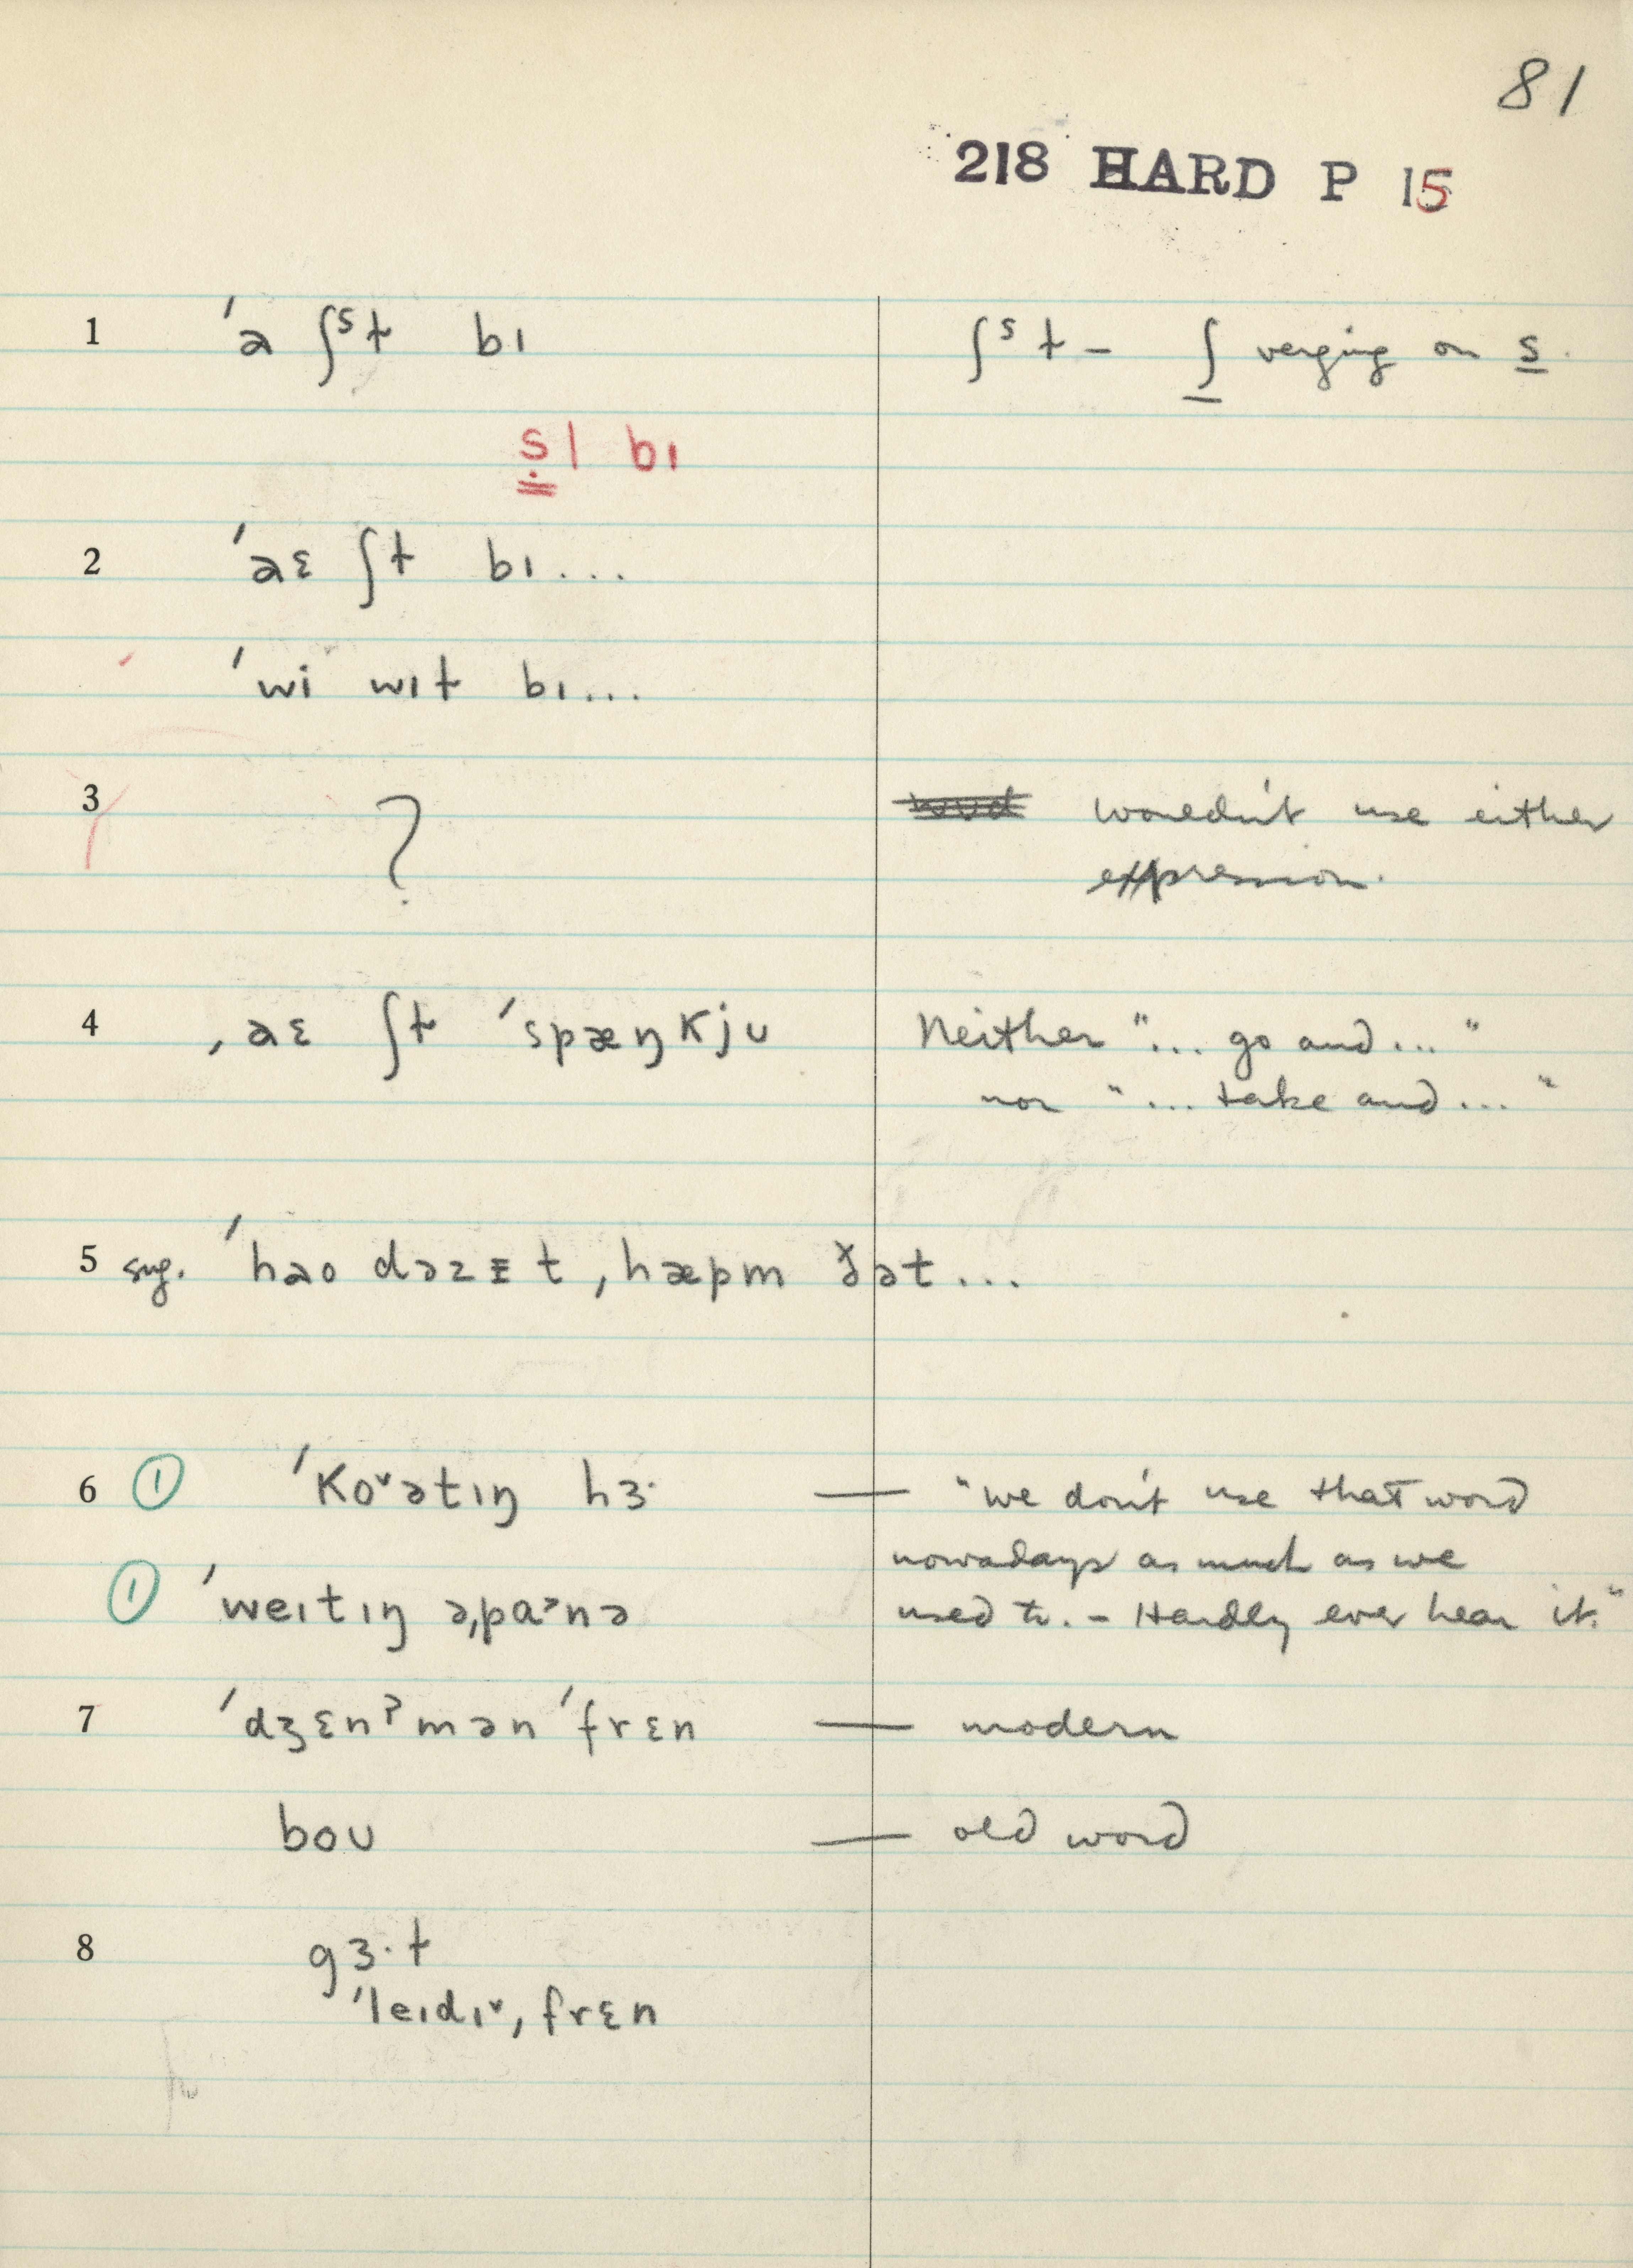 81
218 HARD P 15
1 ˈa ʃˢɫ bɪ ʃˢɫ – ʃ verging on s.
s̩l bɪ
2 ˈaɛ ʃɫ bɪ...
ˈwi wɪɫ bɪ...
3 ? wouldn't use either
expression.
4 ˌaɛ ʃɫ ˈspæŋkjʊ Neither "... go and ... "
nor " ... take and ... "
5 sug. ˈhao dəzᵻt ˌhæpm ðət ...
6 ① ˈkoˇətɪŋ hɜ· — "we don't use that word
nowadays as much as we
① ˈweɪtɪŋ əˌpaˀnə used to. – Hardly ever hear it."
7 ˈdʒɛnˀmən ˈfrɛn — modern
boʊ — old word
8 gɜ·ɫ
ˈleɪdɪˇˌfrɛn